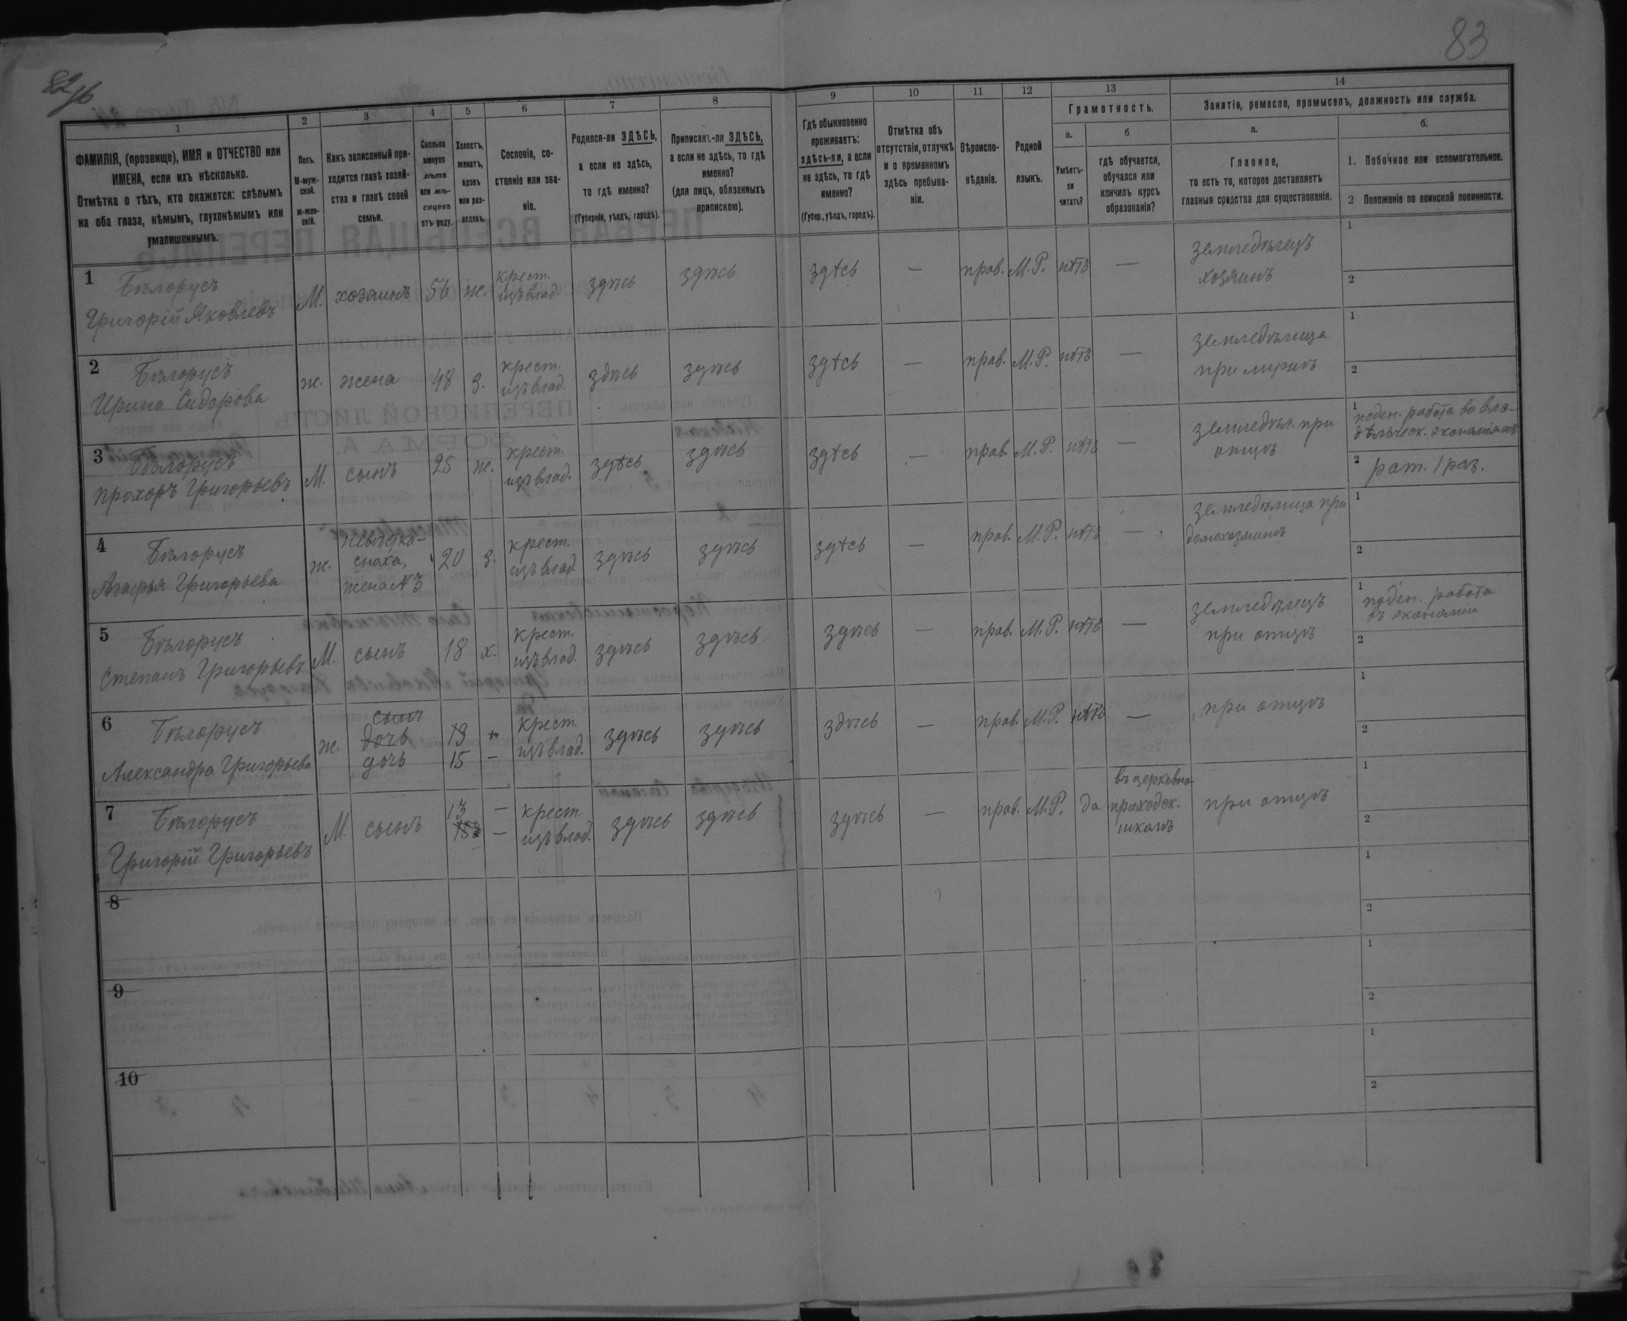 82об
83
1
2
3
4
5
6
7
8
9
10
11
12
13
14
ФАМИЛІЯ, (прозвище), ИМЯ и ОТЧЕСТВО или
ИМЕНА, если ихъ нѣсколько.
Отмѣтка о тѣхъ, кто окажется: слѣпымъ
на оба глаза, нѣмымъ, глухонѣмымъ или
умалишеннымъ.
Полъ.
М-муж-
ской.
Ж-жен-
скій.
Какъ записанный при-
ходится главѣ хозяй-
ства и главѣ своей
семьи.
Сколько
минуло
лѣтъ
или мѣ-
сяцевъ
отъ роду.
Холостъ,
женатъ,
вдовъ
или раз-
веденъ.
Сословіе, со-
стояніе или зва-
ніе.
Родился-ли ЗДѢСЬ,
а если не здѣсь,
то гдѣ именно?
(Губернія, уѣздъ, городъ).
Приписанъ-ли ЗДѢСЬ,
а если не здѣсь, то гдѣ
именно?
(для лицъ, обязанныхъ
припискою).
Гдѣ обыкновенно
проживаетъ:
здѣсь-ли, а если
не здѣсь, то гдѣ
именно?
(Губер., уѣздъ, городъ).
Отмѣтка объ
отсутствіи, отлучкѣ
и о временномъ
здѣсь пребыва-
ніи.
Вѣроиспо-
вѣданіе.
Родной
языкъ.
Грамотность.
а.
Умѣетъ-
ли
читать?
б
гдѣ обучается,
обучался или
кончилъ курсъ
образованія?
Занятіе, ремесло, промыселъ, должность или служба.
а.
Главное,
то есть то, которое доставляетъ
главныя средства для существованія.
б.
1. Побочное или вспомогательное.
2 Положеніе по воинской повинности.
1
Бѣлорусъ
Григорій Яковлевъ
М.
хозяинъ
56
ж.
крест.
изъ влад.
здѣсь
здѣсь
здѣсь
—
прав.
М.Р.
нѣтъ
—
земледѣлецъ
хозяинъ
1
2
2
Бѣлорусъ
Ирина Сидорова
ж.
жена
48
з.
крест.
изъ влад.
здѣсь
здѣсь
здѣсь
—
прав.
М.Р.
нѣтъ
—
земледѣлица
при мужѣ
1
2
3
Бѣлорусъ
Прохоръ Григорьевъ
М.
сынъ
25
ж.
крест.
изъ влад.
здѣсь
здѣсь
здѣсь
—
прав.
М.Р.
нѣтъ
—
земледѣл. при
отцѣ
1 поден. работа во вла-
дѣльческ. экономіяхъ
2 рат. 1 раз.
4
Бѣлорусъ
Агафья Григорьева
ж.
невѣстка-
снаха,
жена №3
20
з.
крест.
изъ влад.
здѣсь
здѣсь
здѣсь
—
прав.
М.Р.
нѣтъ
—
земледѣлица при
домохозяинѣ
1
2
5
Бѣлорусъ
Степанъ Григорьевъ
М.
сынъ
18
х.
крест.
изъ влад.
здѣсь
здѣсь
здѣсь
—
прав.
М.Р.
нѣтъ
—
земледѣлецъ
при отцѣ
1 поден. работа
въ экономіи
2
6
Бѣлорусъ
Александра Григорьева
ж.
сынъ
дочь
дочь
15
—
крест.
изъ влад.
здѣсь
здѣсь
здѣсь
—
прав.
М.Р.
нѣтъ
—
при отцѣ
1
2
7
Бѣлорусъ
Григорій Григорьевъ
М.
сынъ
13
—
—
крест.
изъ влад.
здѣсь
здѣсь
здѣсь
—
прав.
М.Р.
да
въ церковно-
приходск.
школѣ
при отцѣ
1
2
8
1
2
9
1
2
10
1
2